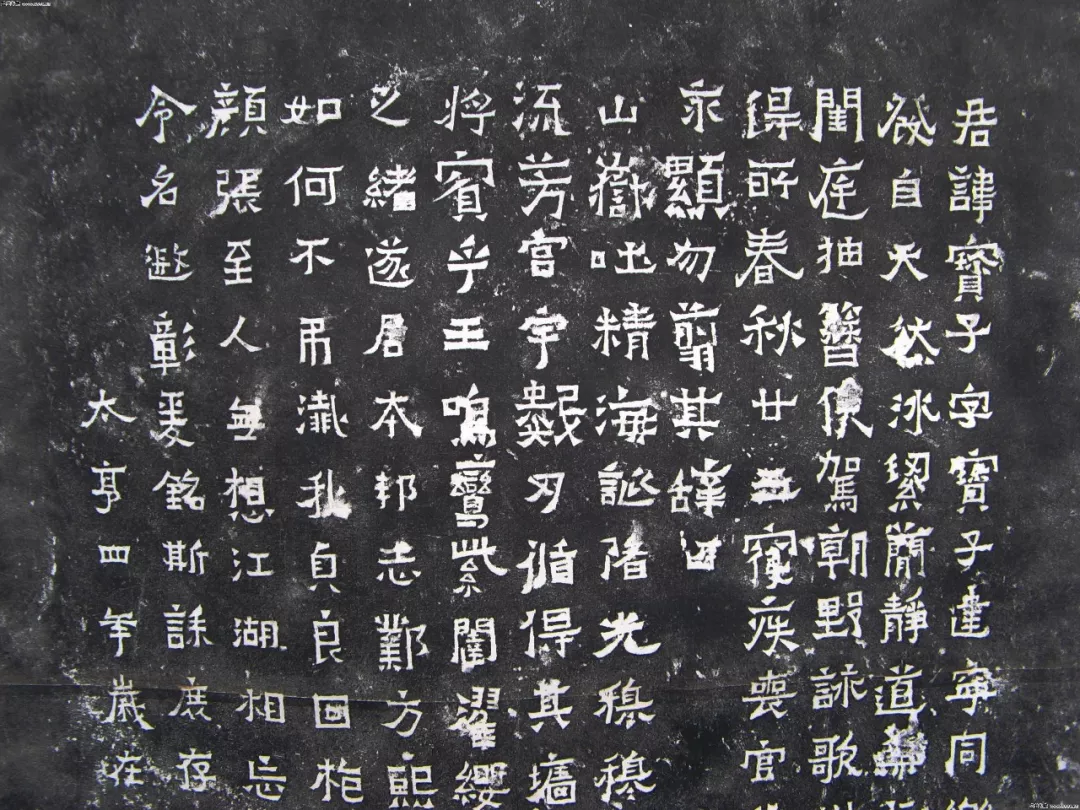 君諱寶子字寶子建寧同
發自天然冰絜蕳靜道
閨庭抽簪俟駕朝野詠歌
得所春秋廿五寑疾喪官
永顯勿翦其辭曰
山嶽吐精海誕陼光穆穆
流芳宮宇數刃循得其墻
將賓乎王鳴鸞紫闥濯纓
之緒遂居本邦志鄴方熙
如何不弔殲我貞良回枹
顏張至人無想江湖相忘
令名遐彰爰銘斯誄庶存
太亨四年歲在